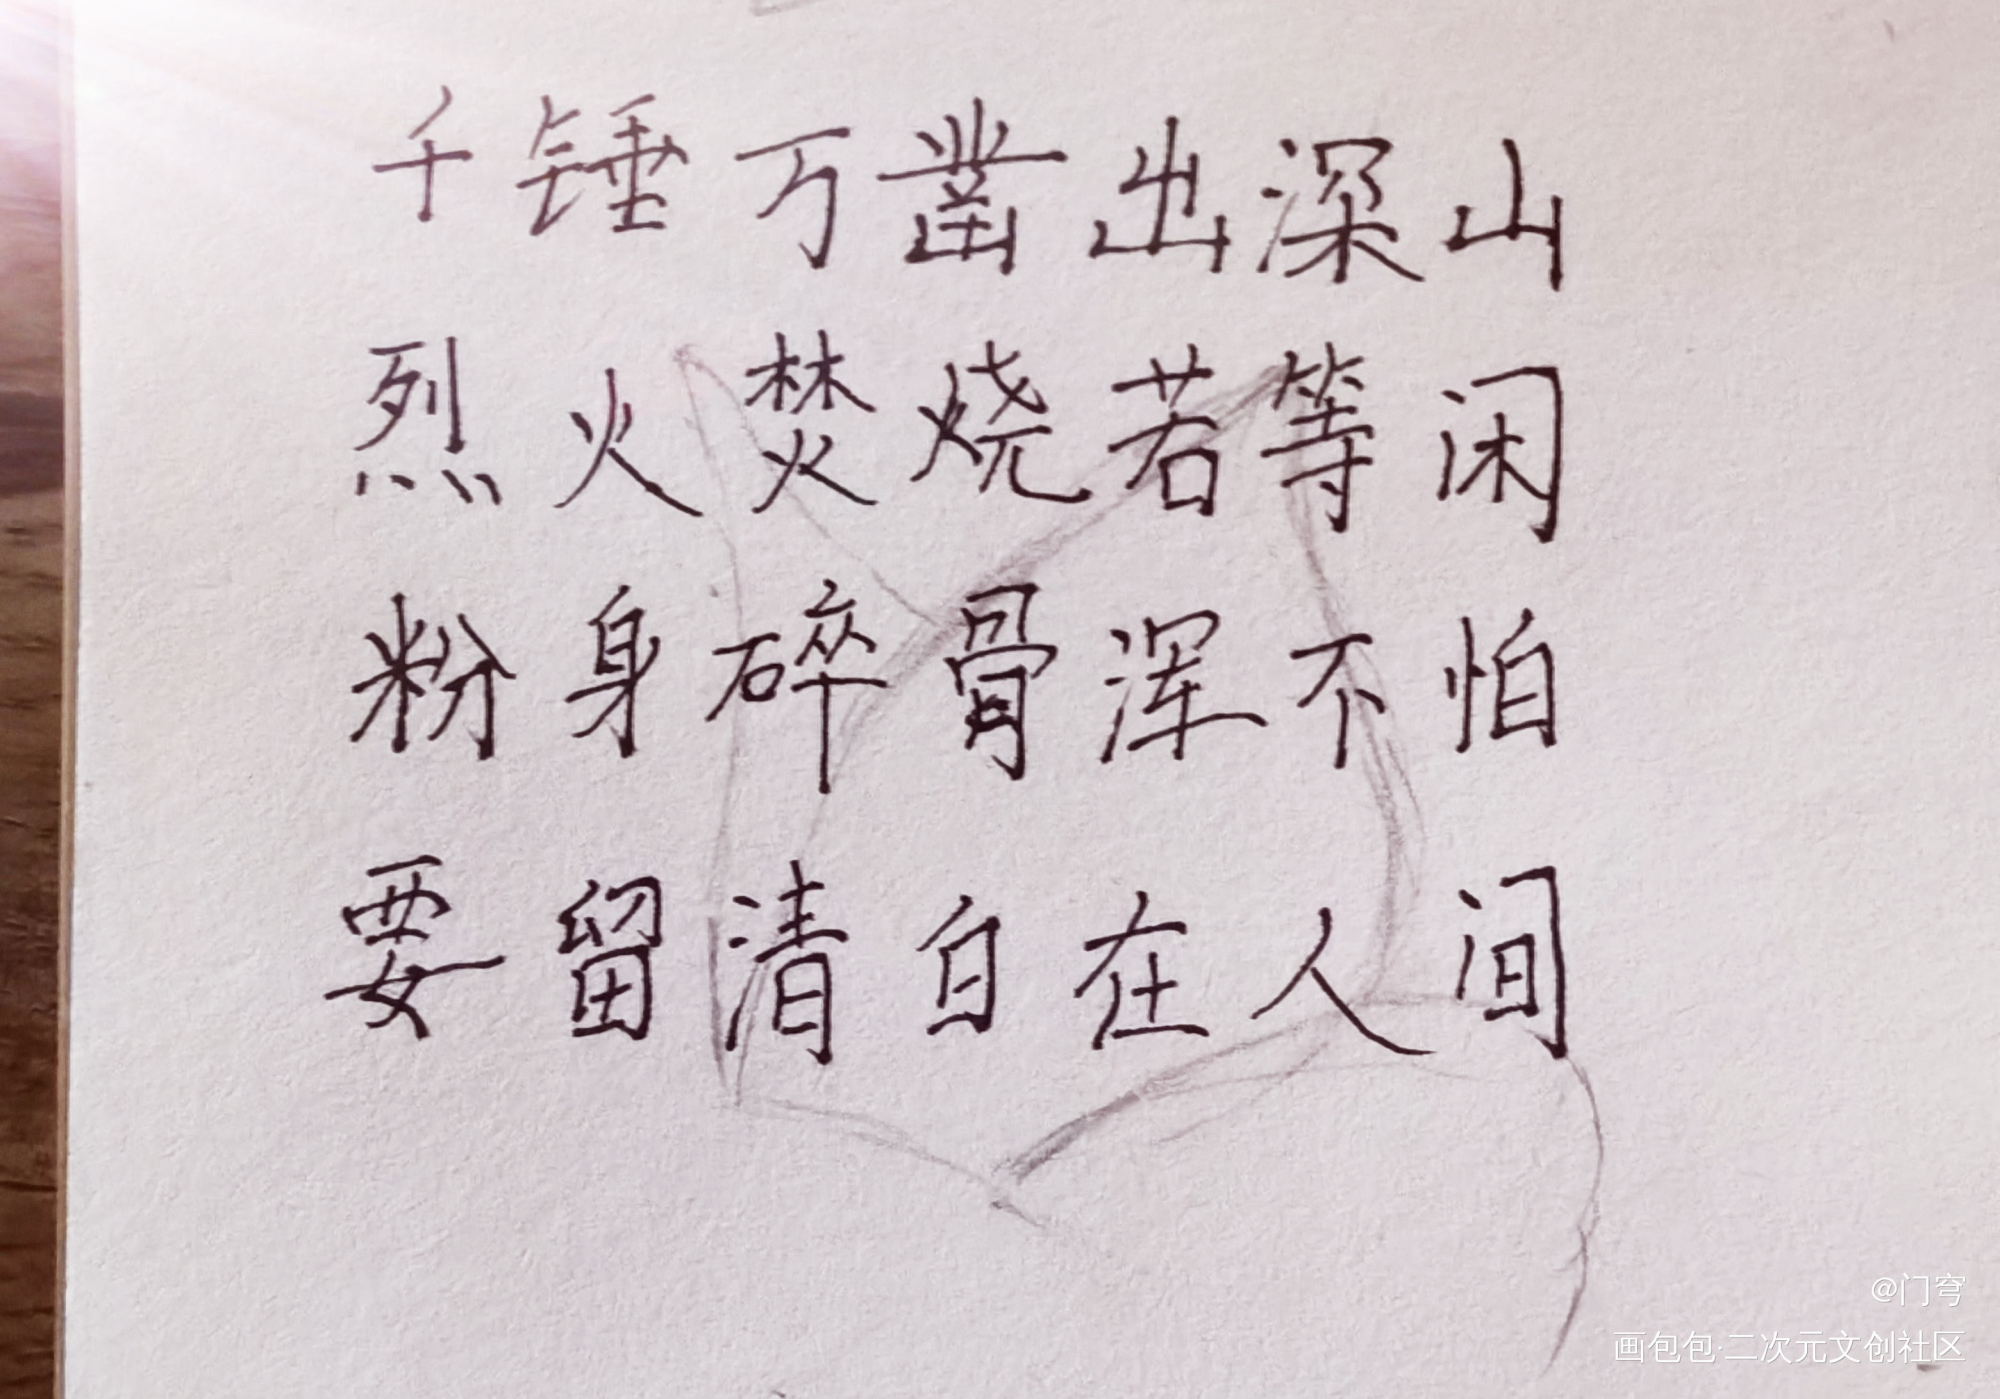 千锤万凿出深山
烈火焚烧若等闲
粉身碎骨浑不怕
要留清白在人间
@门穹
画包包·二次元文创社区